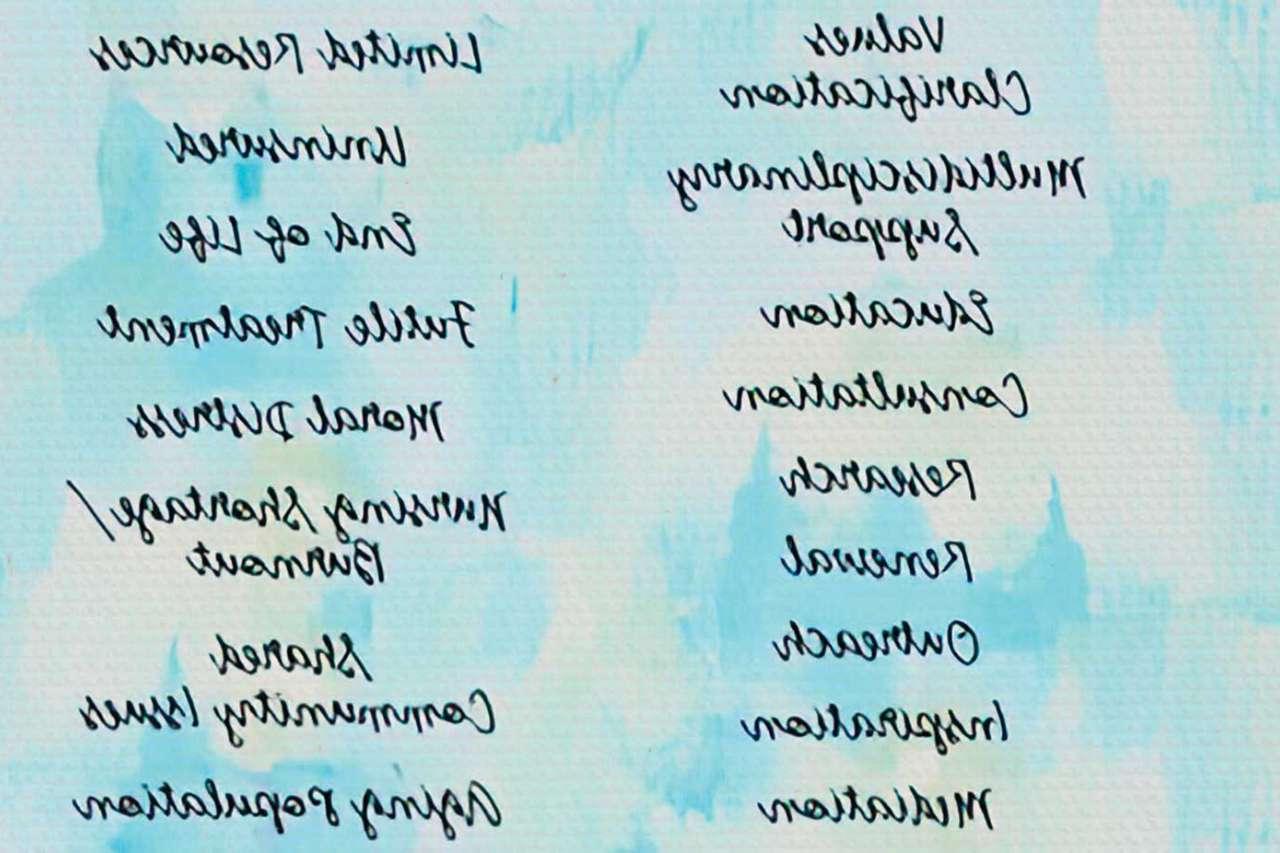 Values
Clarification
Multidisciplinary
Support
Education
Consultation
Research
Renewal
Outreach
Inspiration
Mediation
Limited Resources
Uninsured
End of Life
Futile Treatment
Moral Distress
Nursing Shortage/
Burnout
Shared
Community Issues
Aging Population